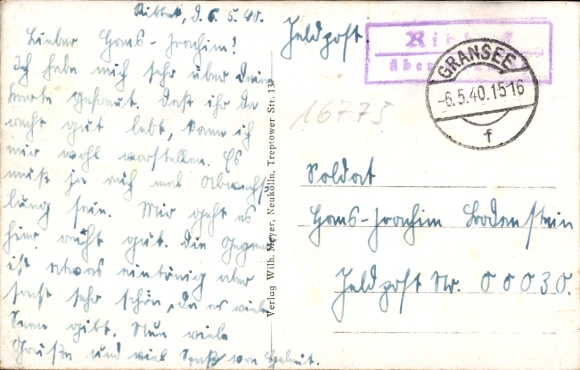 Ribbeck, d. 6. 5. 40.
Lieber Hans-Joachim!
Ich habe mich sehr über Deine
Karte gefreut. Daß ihr da
recht gut lebt, kann ich
mir wohl vorstellen. Es
muß ja auch mal Abwechs-
lung sein. Mir geht es
hier recht gut. Die Gegend
ist etwas eintönig aber
sonst sehr schön, da es viele
Seen gibt. Nun viele
Grüße und viel Spaß von Helmut.
Verlag Wilh. Meyer, Neukölln, Treptower Str. 113
Feldpost.
Ribbeck
über
GRANSEE
-6.5.40.15-16
f
16775
Soldat
Hans-Joachim Bodenstein
Feldpost Nr. 00030.